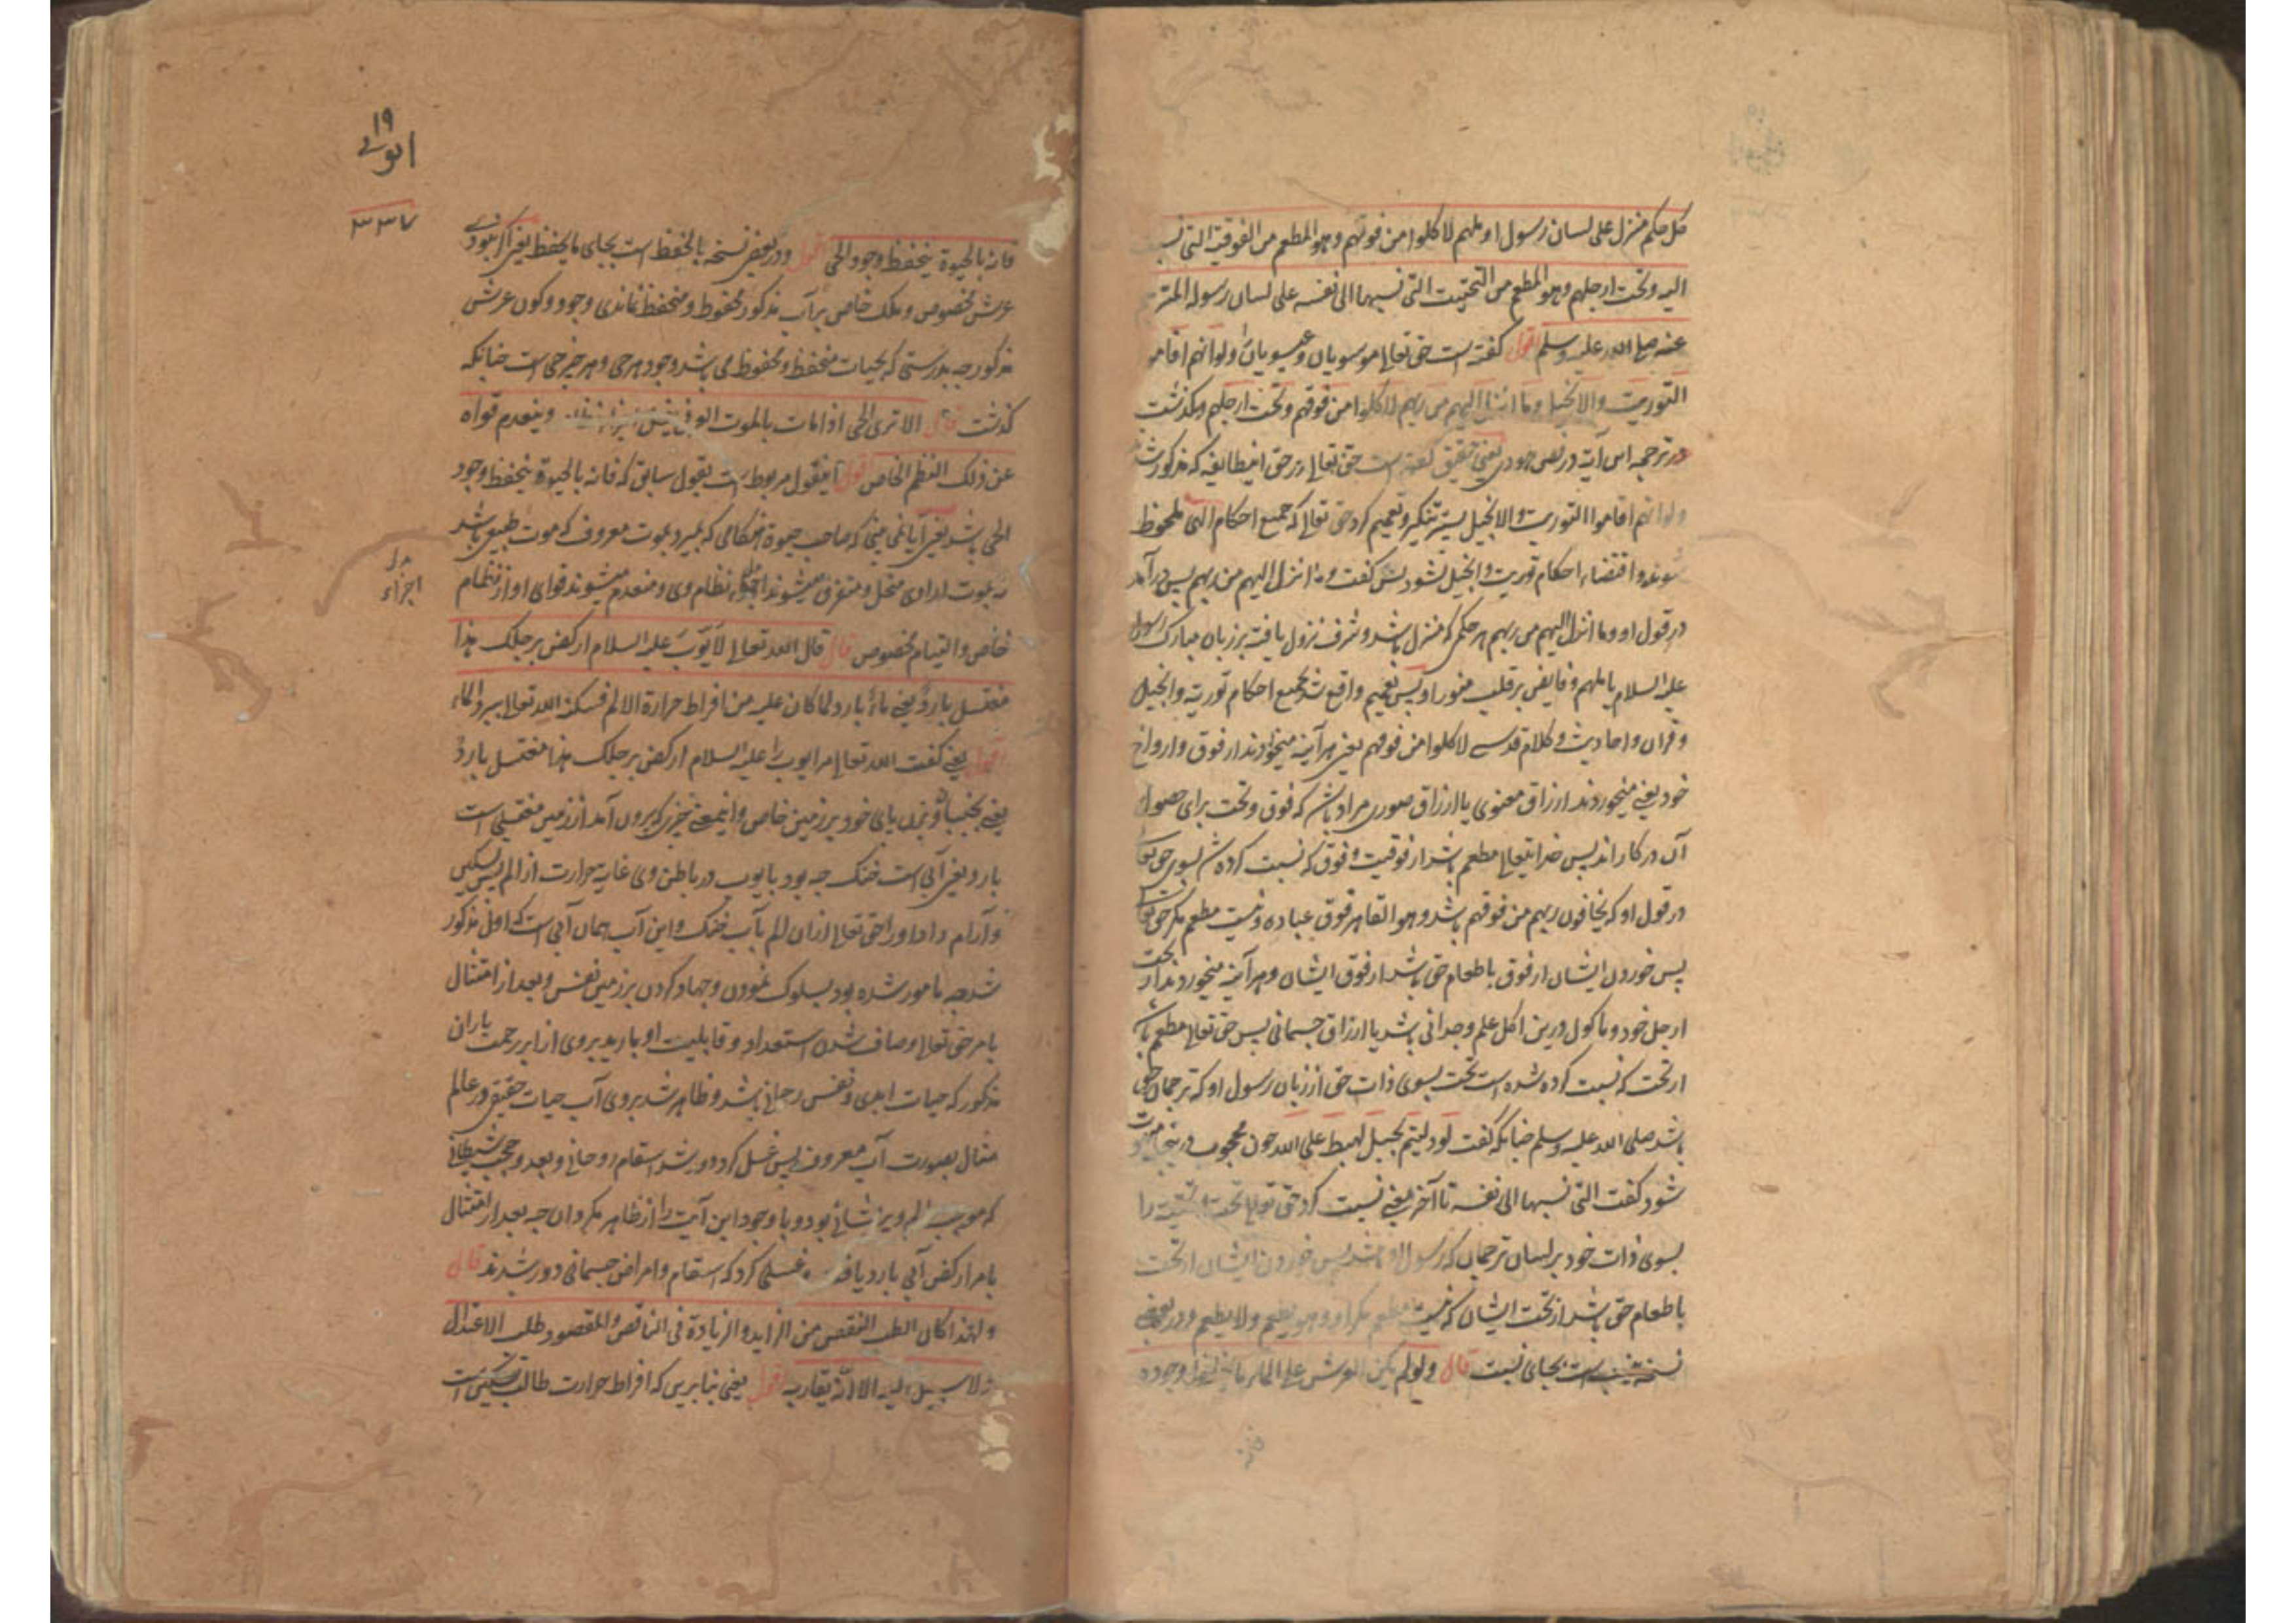 كل حكم منزل على لسان رسول او ملهم لاكلوا من فوقهم وهو المطعم من الفوقية التى نسبت
اليه و تحت ارجلهم وهو المطعم من التحتيت التى نسبها الى نفسه على لسان رسوله المترجم
عنه صلى الله عليه وسلم اقول گفته است حق تعالى موسويان و عيسويان را ولو انهم اقاموا
التوريت والانجيل وما انزل اليهم من ربهم لاكلوا من فوقهم و تحت ارجلهم و بگذشت
در ترجمه اين آيت در نص هودى يعنى تحقيق گفته است حق تعالى در حق اينطايفه كه مذكور شد
ولو انهم اقاموا التوريت والانجيل پس تنكير و تعميم كرد حق تعالى كه جميع احكام الهى ملحوظ
شوند و اقتضاء احكام توريت و انجيل نشود پس گفت وما انزل اليهم من ربهم پس در آمد
در قول او وما انزل اليهم من ربهم هر حكمى كه منزل باشد و شرف نزول يافته بر زبان مبارك رسول
عليه السلام يا ملهم و فايض بر قلب منور او پس تعميم واقع شد بجميع احكام تورية و انجيل
و قرآن و احاديث و كلام قدسى لاكلوا من فوقهم يعنى هر آينه ميخوردند از فوق و ارواح
خود يعنى ميخوردند ارزاق معنوى يا ارزاق صورى مراد باشد كه فوق و تحت براى حصول
آن در كار اند پس خدايتعالى مطعم باشد از فوقيت و فوق كه نسبت كرده شد بسوى حق تعالى
در قول او كه يخافون ربهم من فوقهم باشد و هو القاهر فوق عباده و نيست مطعم مگر حق تعالى
پس خوردن ايشان از فوق باطعام حق باشد از فوق ايشان و هر آينه ميخوردند از تحت
ارجل خود و ماكول درين اكل علم وجدانى باشد يا ارزاق جسمانى پس حق تعالى مطعم باشد
از تحت كه نسبت كرده شده است تحت بسوى ذات حق از زبان رسول او كه ترجمان حق
باشد صلى الله عليه وسلم چنانكه گفت لو دليتم بحبل لهبط على الله چون محجوب درينجا
شود گفت التى نسبها الى نفسه تا آخر يعنى نسبت كرد حق تعالى تحت را
بسوى ذات خود بر لسان ترجمان كه رسول او باشد پس خوردن ايشان از تحت
باطعام حق باشد از تحت ايشان كه نيست مطعم مگر او و هو يطعم ولا يطعم و در بعضى
نسخه است بجاى نسبت قال ولو لم يكن العرش على الماء ما انحفظ وجوده
١٩
ايوبى
٣٣٧
فانه بالحيوة ينحفظ وجود الحى اقول و در بعضى نسخه بالحفظ است بجاى ما يحفظ يعنى اگر نبودى
عرش مخصوص و ملك خاص بر آب مذكور محفوظ و منحفظ نماندى وجود و كون عرش
مذكور چه بدرستى كه بحيات منحفظ و محفوظ مى باشد وجود هر حى و هر چيز حى است چنانكه
گذشت قال الا ترى الحى اذا مات بالموت العرفى ينحل اجزاء نظامه و ينعدم قواه
عن ذلك النظم الخاص اقول اينقول مربوط است بقول سابق كه فانه بالحيوة ينحفظ وجود
الحى باشد يعنى آيا نمى بينى كه صاحب حيوة هنگامى كه بميرد بموت معروف كه موت طبيعى باشد
نه بموت ارادى منحل و متفرق ميشوند نظام وى و منعدم ميشوند قواى او از نظام
اجزاء
خاص و التيام مخصوص قال قال الله تعالى لايوب عليه السلام اركض برجلك هذا
مغتسل بارد يعنى ماء بارد لما كان عليه من افراط حرارة الالم فسكنه الله تعالى ببرد الماء
اقول يعنى گفت الله تعالى مر ايوب را عليه السلام اركض برجلك هذا مغتسل بارد
يعنى بجنبان و بزن پاى خود بر زمين خاص و اينمعنى چيزى كه بيرون آمد از زمين مغتسلى است
بارد يعنى آبى است خنك چه بود بايوب در باطن وى غايت حرارت از الم پس تسكين
و آرام داد او را حق تعالى از ان الم بآب خنك و اين آب همان آبى است كه اول مذكور
شد چه مامور شده بود بسلوك نمودن و جهاد كردن بر زمين نفس و بعد از امتثال
بامر حق تعالى و صاف شدن استعداد و قابليت او باريد بروى از ابر رحمت باران
مذكور كه حيات ابدى و نفس رحمانى باشد و ظاهر شد بروى آب حيات حقيقى در عالم
مثال بصورت آب معروف پس غسل كرد و دور شد اسقام روحانى و بعد و حجب شيطانى
كه موجب الم و يرنشانى بود و با وجود اين آيت را از ظاهر مگردان چه بعد از امتثال
بامر اركض آبى بارد يافت و غسلى كرد كه اسقام و امراض جسمانى دور شدند قال
ولهذا كان الطب النقص من الزايد والزيادة فى الناقص والمقصود طلب الاعتدال
ولا سبيل اليه الا انه يقاربه اقول يعنى بنا برين كه افراط حرارت طالب تسكين است